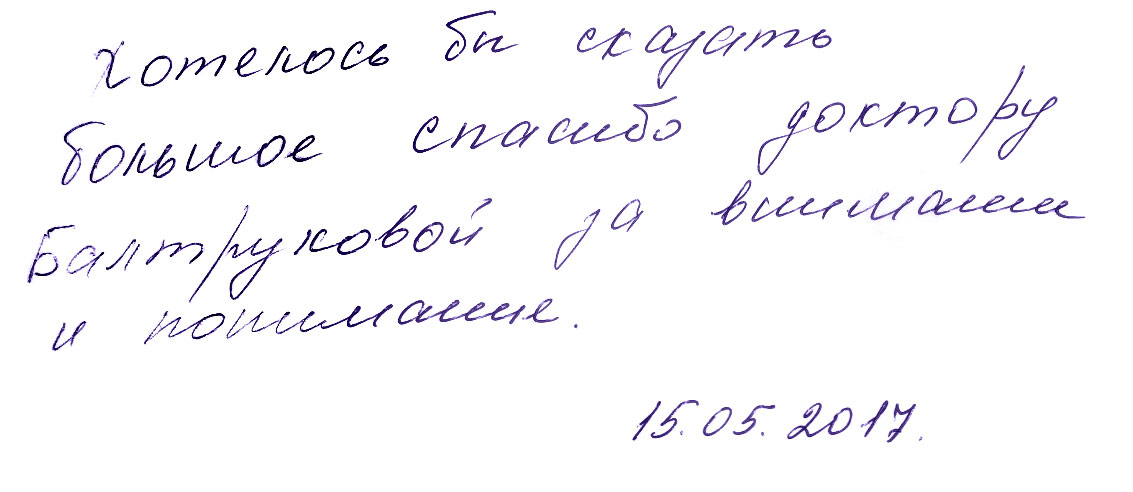 Хотелось бы сказать
большое спасибо доктору
Балтруковой за внимание
и понимание.
15.05.2017.